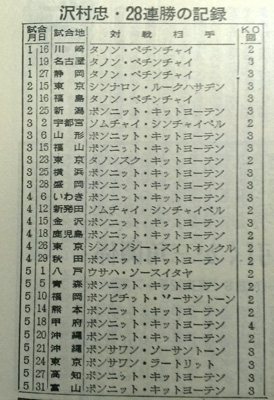 沢村忠・28連勝の記録
試合月日 試合地 対戦相手 KO回
1 16 川崎 タノン・ペチンチャイ 2
1 19 名古屋 タノン・ペチンチャイ 3
1 27 静岡 タノン・ペチンチャイ 3
2 15 東京 シンナロン・ルークハサデン 3
2 16 福島 タノン・ペチンチャイ 2
2 25 新潟 ポンニット・キットヨーテン 3
3 2 宇都宮 ソムチャイ・シンチャイベル 2
3 6 山形 ポンニット・キットヨーテン 3
3 15 福山 ポンニット・キットヨーテン 3
3 23 東京 タノンスク・キットヨーテン 2
3 25 横浜 ポンニット・キットヨーテン 3
3 28 盛岡 ポンニット・キットヨーテン 3
4 6 いわき ポンニット・キットヨーテン 2
4 12 新発田 ソムチャイ・シンチャイベル 2
4 15 金沢 ポンニット・キットヨーテン 3
4 18 鹿児島 ポンニット・キットヨーテン 3
4 26 東京 シンノンシー・スイトオンクル 2
4 29 秋田 ポンニット・キットヨーテン 2
5 1 八戸 ウサハ・ソースイタヤ 2
5 5 青森 ポンニット・キットヨーテン 2
5 10 福岡 ポンピチット・ソーサントーン 2
5 14 熊本 ポンニット・キットヨーテン 2
5 18 甲府 ポンニット・キットヨーテン 4
5 20 沖縄 ポンニット・キットヨーテン 2
5 21 沖縄 ポンサワン・ソーサントーン 3
5 24 東京 ポンサワン・デートリット 3
5 27 高知 ポンニット・キットヨーテン 3
5 31 富山 ポンニット・キットヨーテン 3